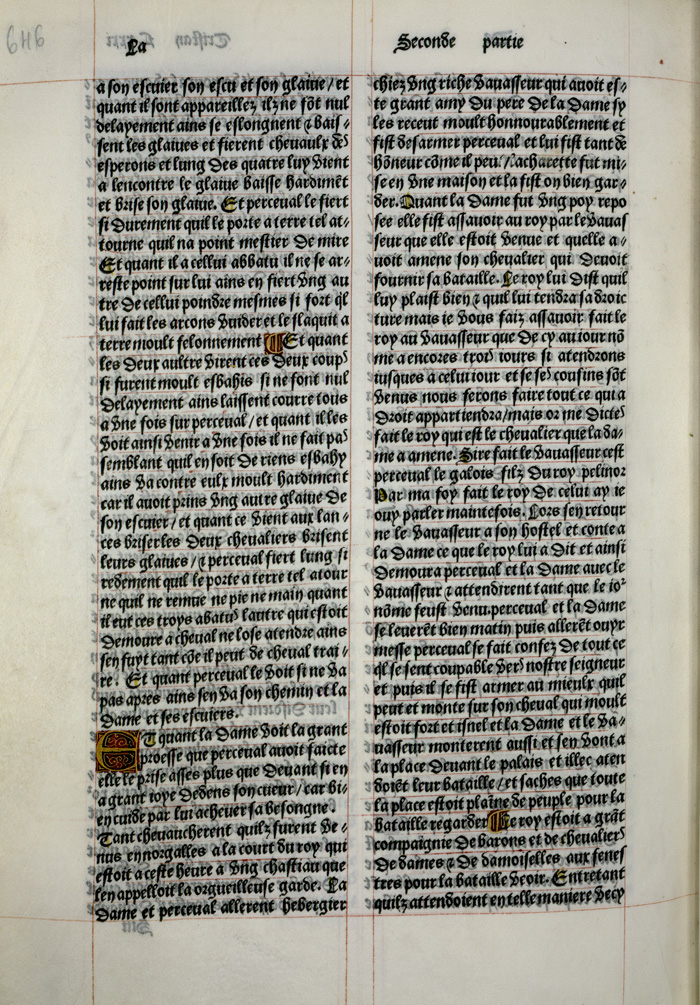 649
La
Seconde partie
a son escuier son escu et son glaiue / et
quant il sont appareillez ilz ne fōt nul
delayement ains se eslongnent ⁊ bais⸗
sent les glaiues et fierent cheuaulx des
esperons et lung des quatre luy vient
a lencontre le glaiue baisse hardimēt
et brise son glaiue. Et perceual le fiert
si durement quil le porte a terre tel at⸗
tourne quil na point mestier de mire
Et quant il a cellui abbatu il ne se ar⸗
reste point sur lui ains en fiert vng au
tre de cellui poindre mesmes si fort q̄l
lui fait les arcons vuider et le flaquit a
terre moult felonnement ¶ Et quant
les deux aultre virent ces deux coups
si furent moult esbahis si ne font nul
delayement ains laissent courre tous
a vne fois sur perceual / et quant il les
voit ainsi venir a vne fois il ne fait pas
semblant quil en soit de riens esbahy
ains va contre eulx moult hardiment
car il auoit prins vng autre glaiue de
son escuier / et quant ce vient aux lan⸗
ces briser les deux cheualiers brisent
leurs glaiues / ⁊ perceual fiert lung si
redement quil le porte a terre tel atour
ne quil ne remue ne pie ne main quant
il eut ces troys abatus lautre qui estoit
demoure a cheual ne lose atendre ains
sen fuyt tant cōe il peut de cheual trai⸗
re. Et quant perceual le voit si ne va
pas apres ains sen va son chemin et la
dame et ses escuiers.
ET quant la dame voit la grant
proesse que perceual auoit faicte
elle le prise asses plus que deuant si en
a grant ioye dedens son cueur / car bi⸗
en cuide par lui acheuer sa besongne.
Tant cheuaucherent quilz furent ve⸗
nus en norgalles a la court du roy qui
estoit a ceste heure a vng chastiau que
len appelloit la orgueilleuse garde. La
dame et perceual allerent hebergier
chiez vng riche vauasseur qui auoit es⸗
te grant amy du pere de la dame sy
les receut moult honnourablement et
fist desarmer perceual et lui fist tant de
hōneur cōme il peu / Lacharette fut mi⸗
se en vne maison et la fist on bien gar⸗
der. Quant la dame fut vng poy repo
see elle fist assauoir au roy par le vauas
seur que elle estoit venue et quelle a⸗
uoit amene son cheualier qui deuoit
fournir sa bataille. Le roy lui dist quil
luy plaist bien ⁊ quil lui tendra sa droic
ture mais ie vous faiz assauoir fait le
roy au vauasseur que de cy au iour nō
me a encores trois iours si atendrons
iusques a celui iour et se ses cousins sōt
venus nous ferons faire tout ce qui a
droit appartiendra / mais or me dictes
fait le roy qui est le cheualier que la da⸗
me a amene. Sire fait le vauasseur cest
perceual le galois filz du roy pelinor
Par ma foy fait le roy de celui ay ie
ouy parler maintefois. Lors sen retour
ne le vauasseur a son hostel et conte a
la dame ce que le roy lui a dit et ainsi
demoura perceual et la dame auec le
vauasseur ⁊ attendirent tant que le ior
nōme feust venu. perceual et la dame
se leuerēt bien matin puis allerēt ouyr
messe perceual se fait confez de tout ce
q̄l se sent coupable vers nostre seigneur
et puis il se fist armer au mieulx quil
peut et monte sur son cheual qui moult
estoit fort et isnel et la dame et le va⸗
uasseur monterent aussi et sen vont a
la place deuant le palais et illec aten
doiēt leur bataille / et saches que toute
la place estoit plaine de peuple pour la
bataille regarder ¶ Le roy estoit a grāt
compaignie de barons et de cheualiers
de dames ⁊ de damoiselles aux fenes
tres pour la bataille veoir. Entretant
quilz attendoient en telle maniere vecy